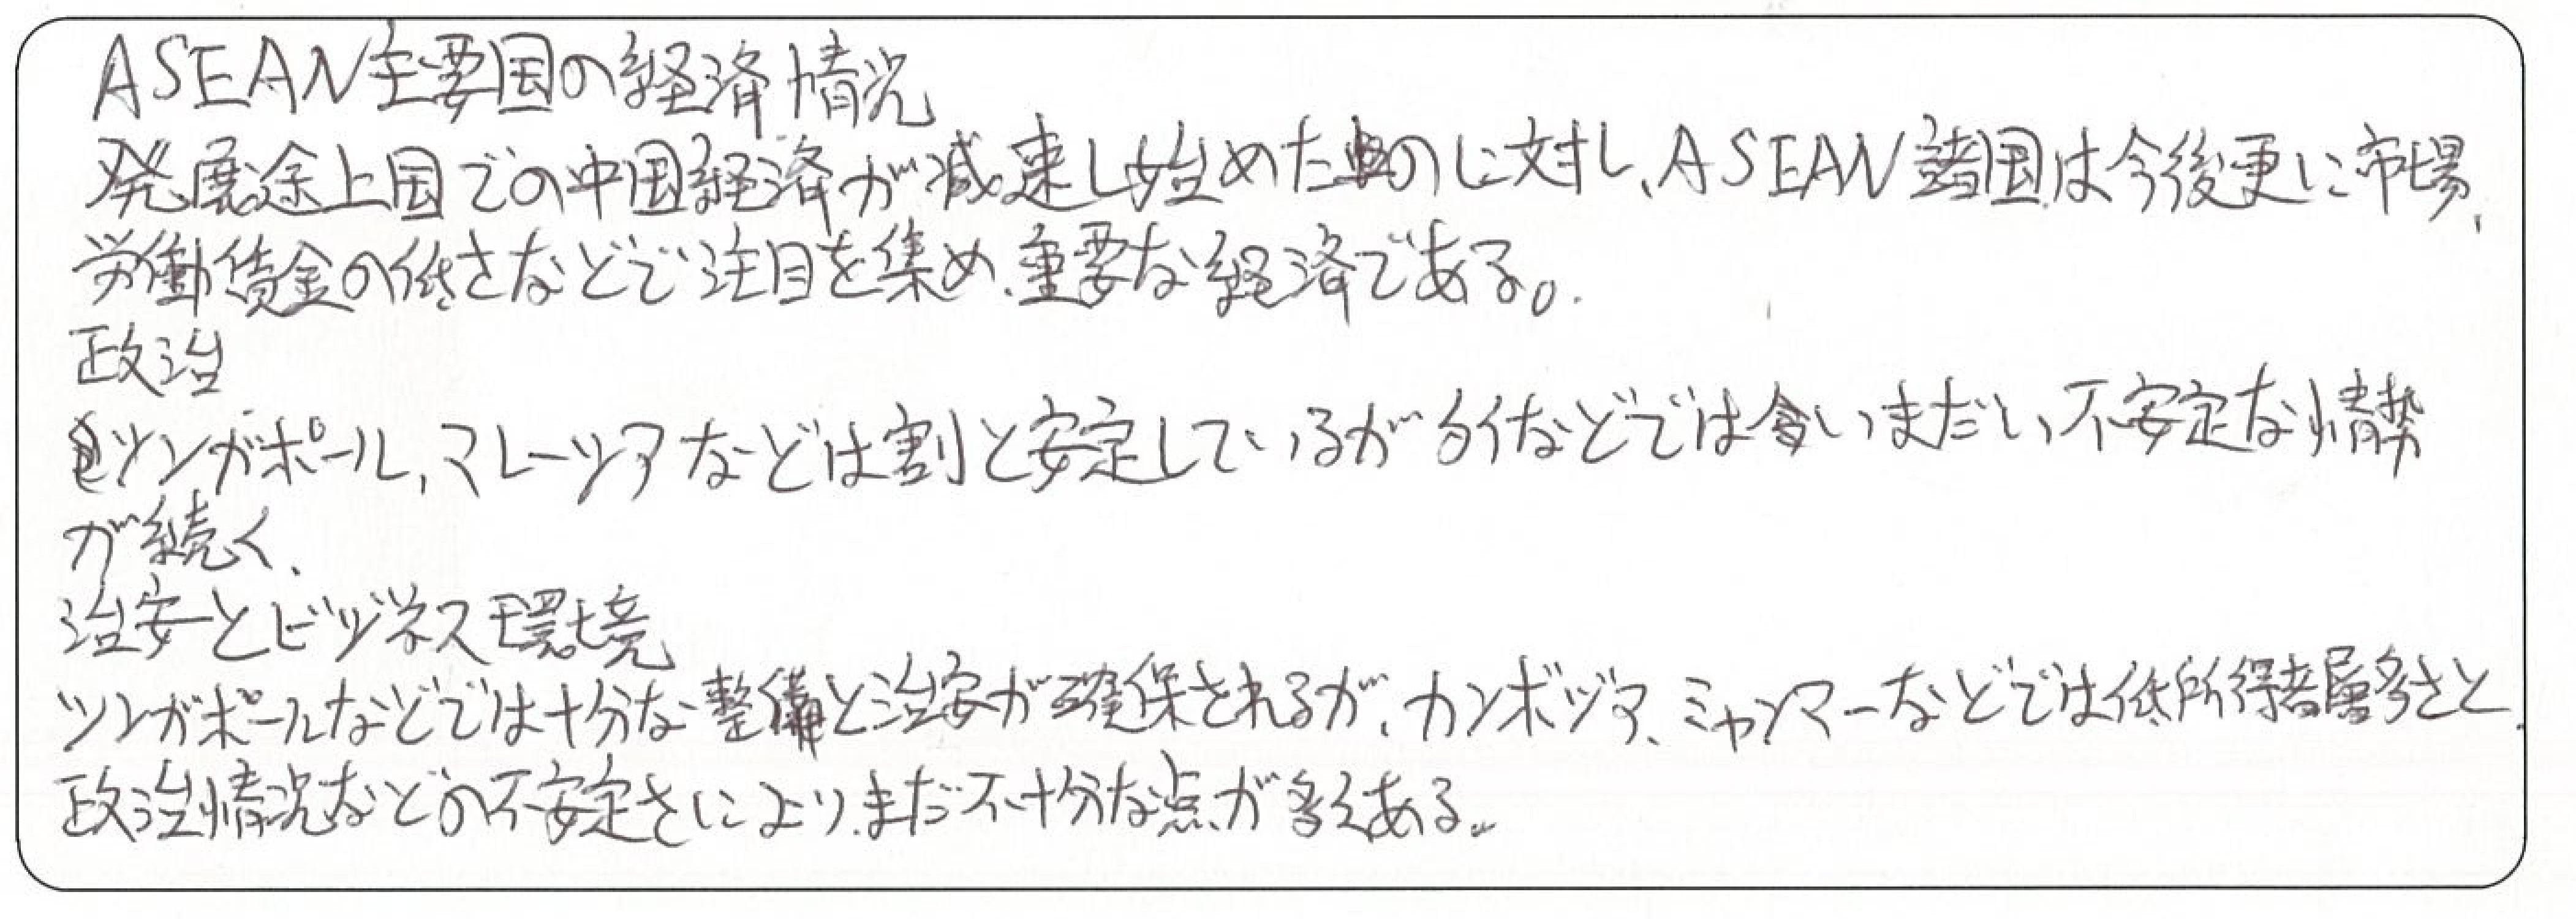 ASEAN主要国の経済情況
発展途上国での中国経済が減速し始めたのに対し、ASEAN諸国は今後更に市場、
労働賃金の低さなどで注目を集め、重要な経済である。
政治
シンガポール、マレーシアなどは割と安定しているがタイなどではいまだい不安定な情勢
が続く、
治安とビジネス環境
シンガポールなどでは十分な整備と治安が確保されるが、カンボジア、ミャンマーなどでは低所得者層多さと、
政治情況などの不安定さにより、まだ不十分な点が多くある。